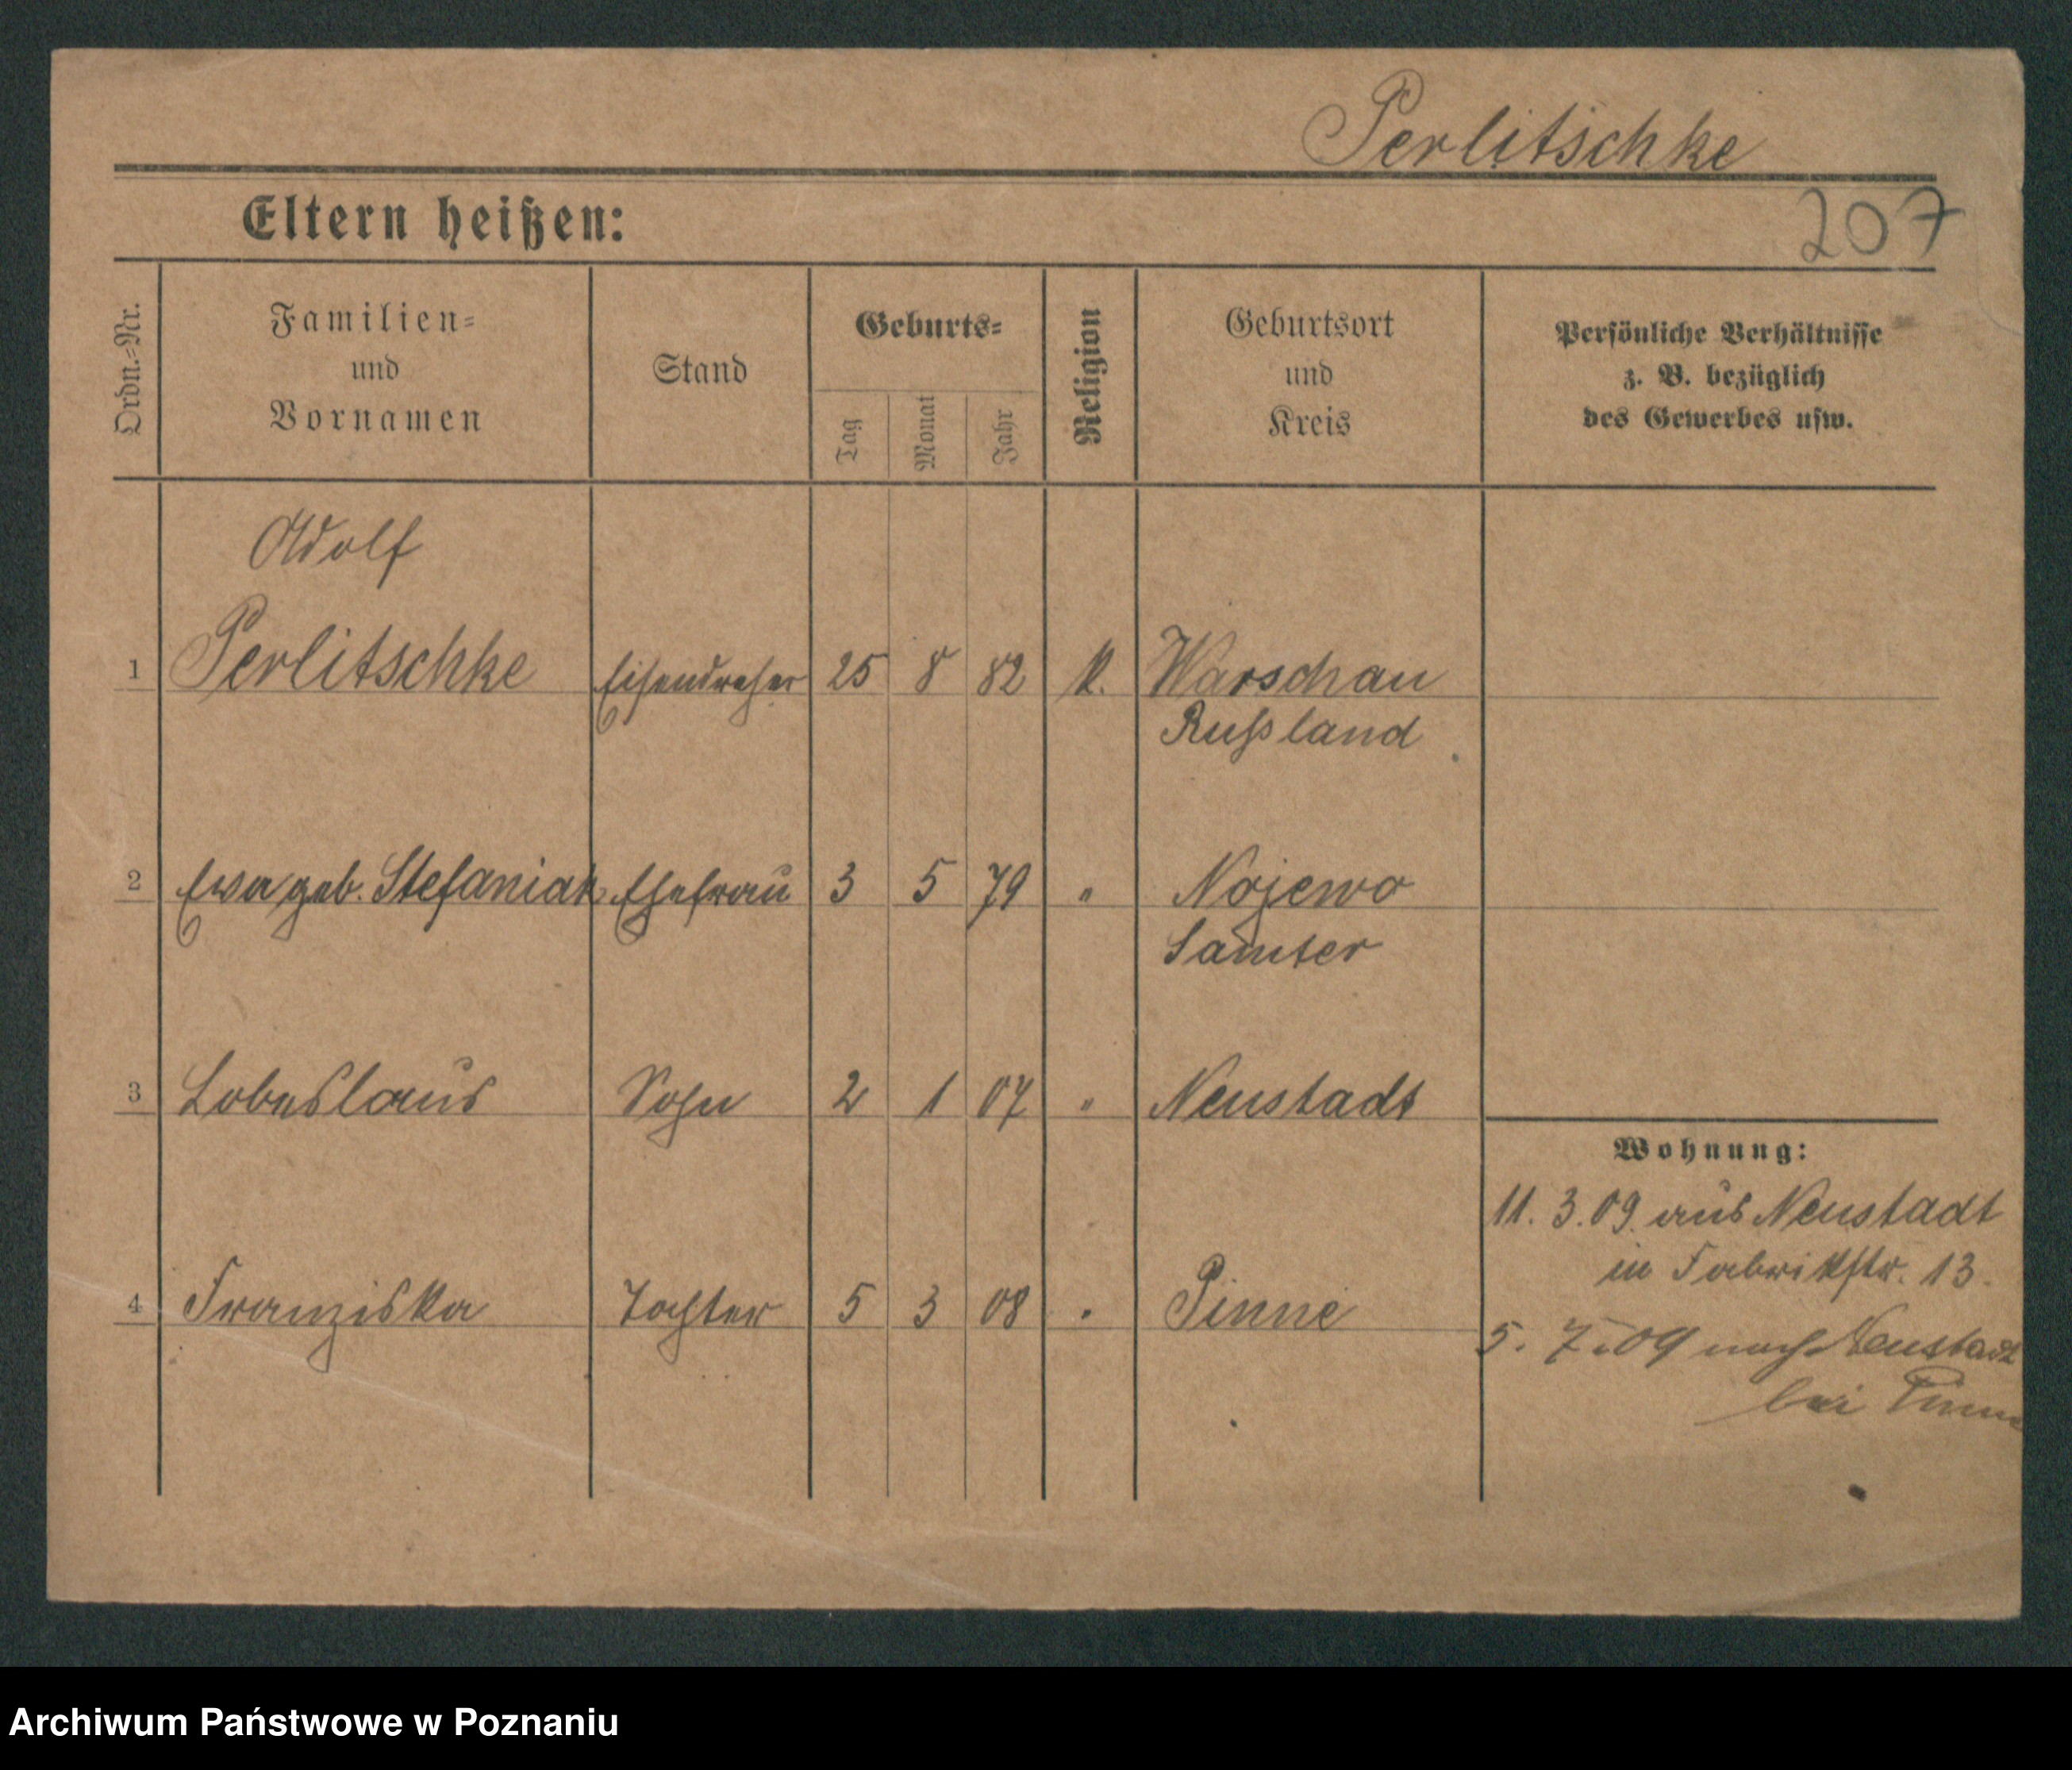 Perlitschke
Eltern heißen:
207
Ordn.-Nr.
Familien-
und
Vornamen
Stand
Geburts-
Tag
Monat
Jahr
Religion
Geburtsort
und
Kreis
Persönliche Verhältnisse
z. B. bezüglich
des Gewerbes usw.
Adolf
1 Perlitschke Eisendreher 25 8 82 K. Warschau
Rußland
2 Ewa geb. Stefaniak Ehefrau 3 5 79 " Nojewo
Samter
3 Sohn 2 1 07 " Neustadt
Wohnung:
11. 3. 09. aus Neustadt
in Fabrikstr. 13.
4 Franziska Tochter 5 3 08 " Pinne
5. 7. 09 nach Neustadt
bei Pinne
Archiwum Państwowe w Poznaniu